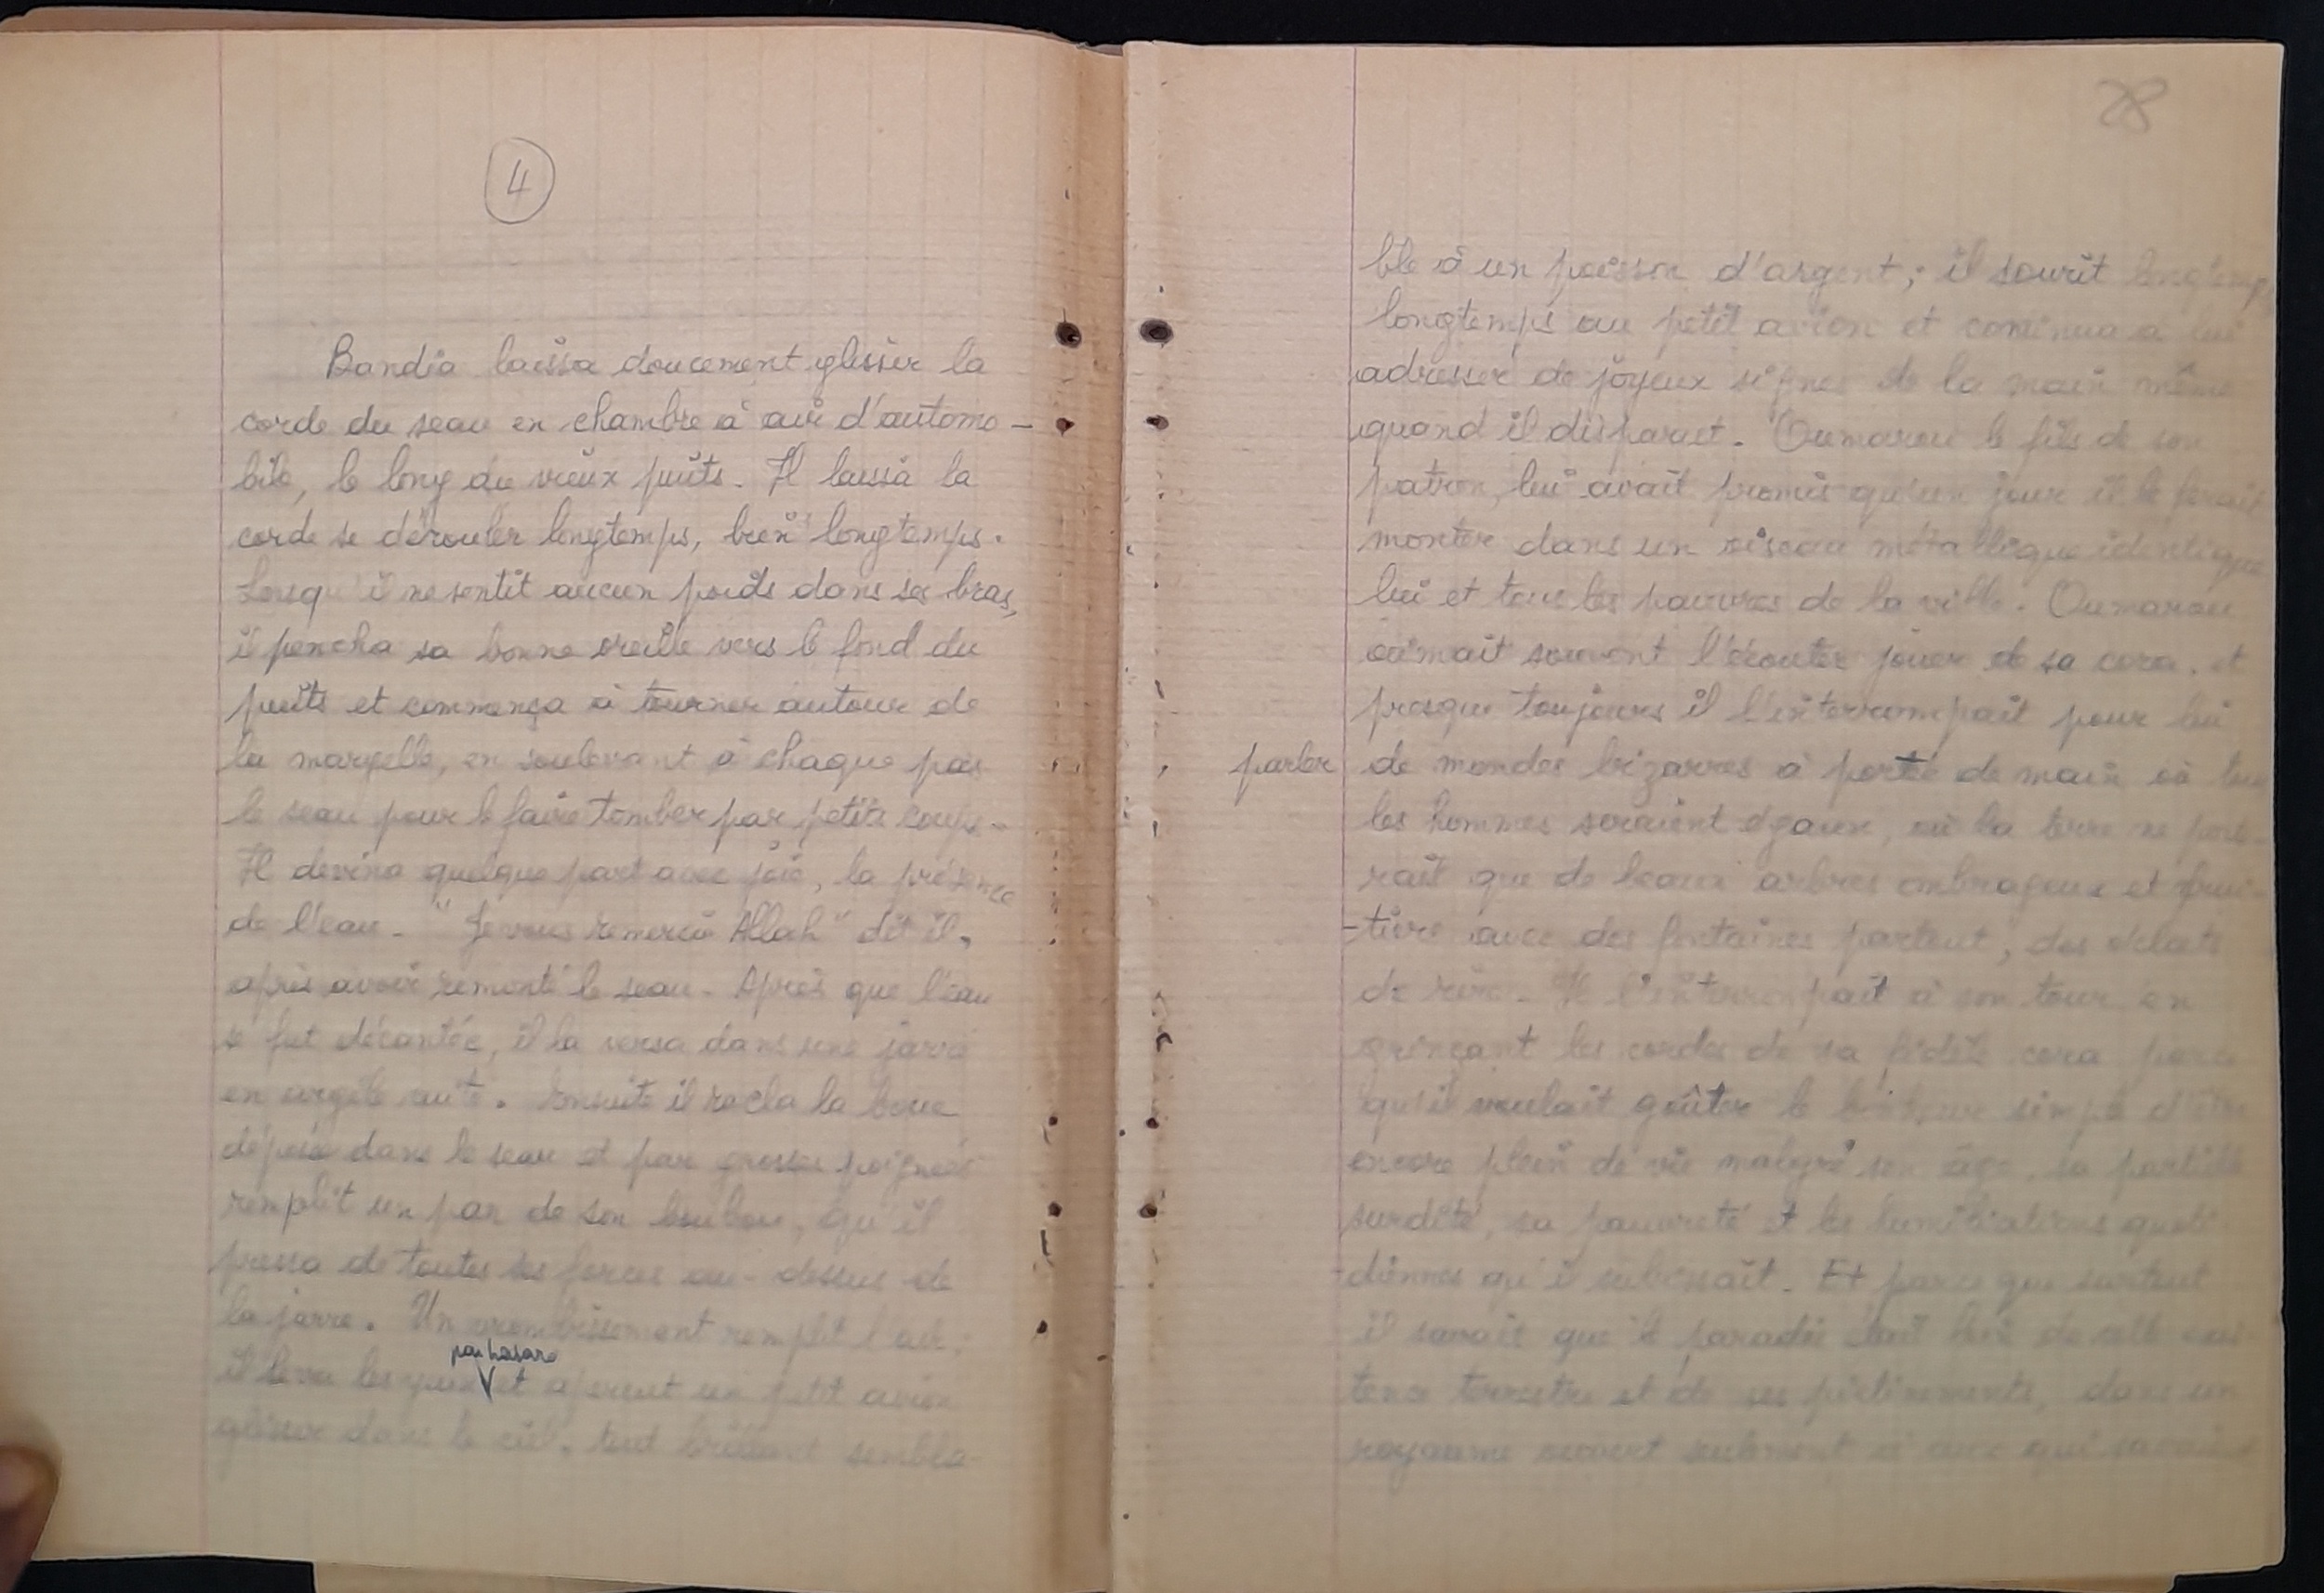 4
Bandia laissa doucement glisser la
corde du seau en chambre à air d'automo-
bile, le long du vieux puits. Il laissa la
corde se dérouler longtemps, bien longtemps.
Lorsqu'il ne sentit aucun poids dans ses bras,
il pencha sa bonne oreille vers le fond du
puits et commença à tourner autour de
la margelle, en soulevant à chaque pas
le seau pour le faire tomber par petits coups.
Il devina quelque part avec joie, la présence
de l'eau. "Je vous remercie Allah" dit il,
après avoir remonté le seau. Après que l'eau
se fut décantée, il la versa dans une jarre
en argile cuite. Ensuite il racla la boue
déposée dans le seau et par grosses poignées
remplit un pan de son boubou, qu'il
pressa de toutes ses forces au-dessus de
la jarre. Un vrombissement remplit l'air,
par hasard
il leva les yeux et aperçut un petit avion
glisser dans le ciel, tout brillant sembla-
28
ble à un poisson d'argent; il sourit longtemps
longtemps au petit avion et continua à lui
adresser de joyeux signes de la main même
quand il disparut. Oumarou le fils de son
patron, lui avait promis qu'un jour il le ferait
monter dans un oiseau métallique identique
lui et tous les pauvres de la ville. Oumarou
aimait souvent l'écouter jouer de sa cora. et
presque toujours il l'interrompait pour lui
parler de mondes bizarres à porté de main où tous
les hommes seraient égaux, où la terre ne porte-
rait que de beaux arbres ombrageux et frui-
-tiers avec des fontaines partout, des éclats
de rire. Il l'interrompait à son tour en
grinçant les cordes de sa fidèle cora parce
qu'il voulait goûter le bonheur simple d'être
encore plein de vie malgré son âge, sa partielle
surdité, sa pauvreté et les humiliations quoti
-diennes qu'il subissait. Et parce que surtout
il savait que le paradis était hors de cette exis-
tence terrestre et de ses piétinements, dans un
royaume ouvert seulement à ceux qui savaient